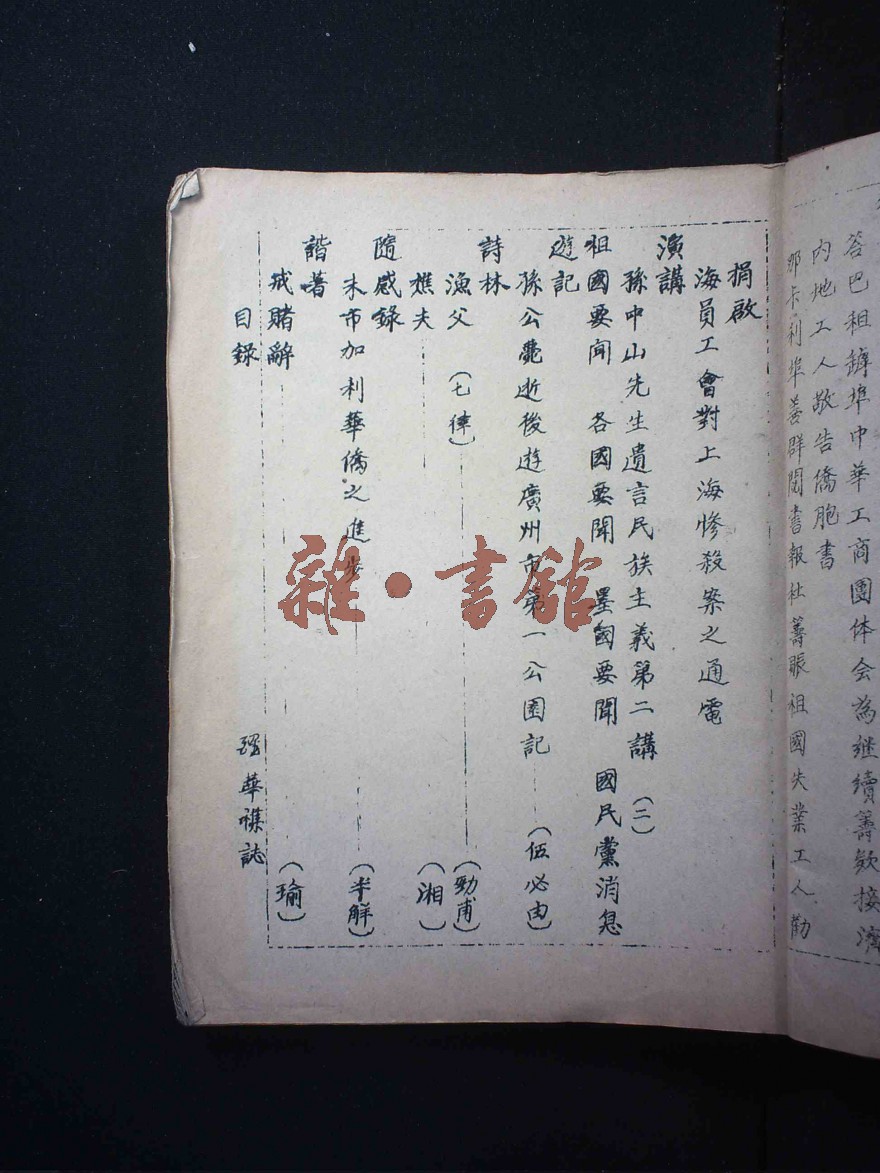 荅巴租罅埠中華工商團体会為继續籌欵接濟
内地工人敬告僑胞書
那卡利埠善群閱書報社籌賑祖國失業工人勸
捐啟
海員工會對上海慘殺案之通電
演講
孫中山先生遺言民族主義第二講 (二)
祖國要闻 各國要聞 墨國要聞 國民黨消息
遊記
孫公薨逝後遊廣州市第一公園記 (伍必由)
詩林
漁父 (七律) (勁甫)
樵夫 (湘)
隨感錄
未市加利華僑之進步 (半解)
諧著
戒賭辭 (瑜)
目錄 華襍誌
雜·書館